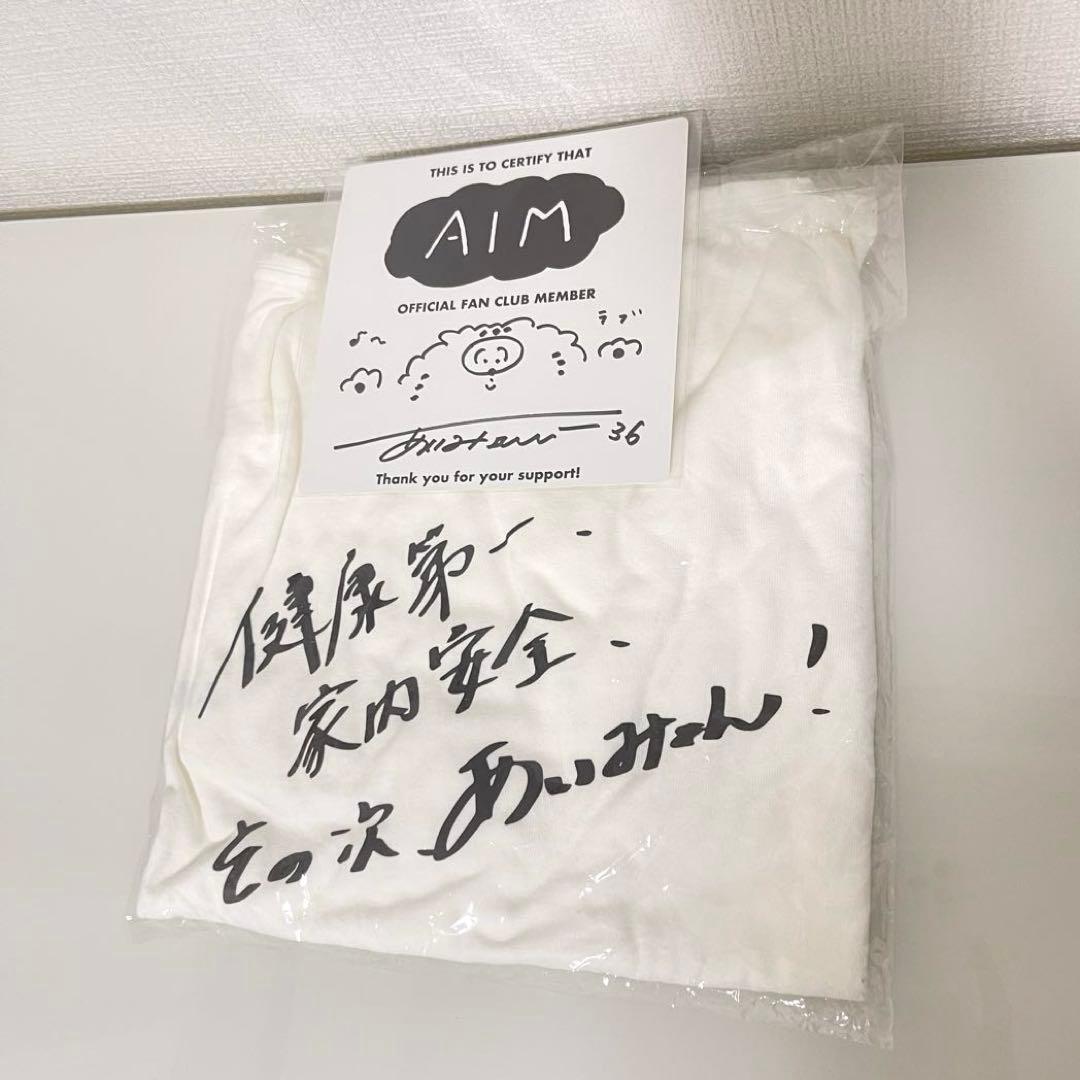 THIS IS TO CERTIFY THAT
AIM
OFFICIAL FAN CLUB MEMBER
♪〜
ラブ
あいみょん 36
Thank you for your support!
健康第一.
家内安全.
その次 あいみょん!